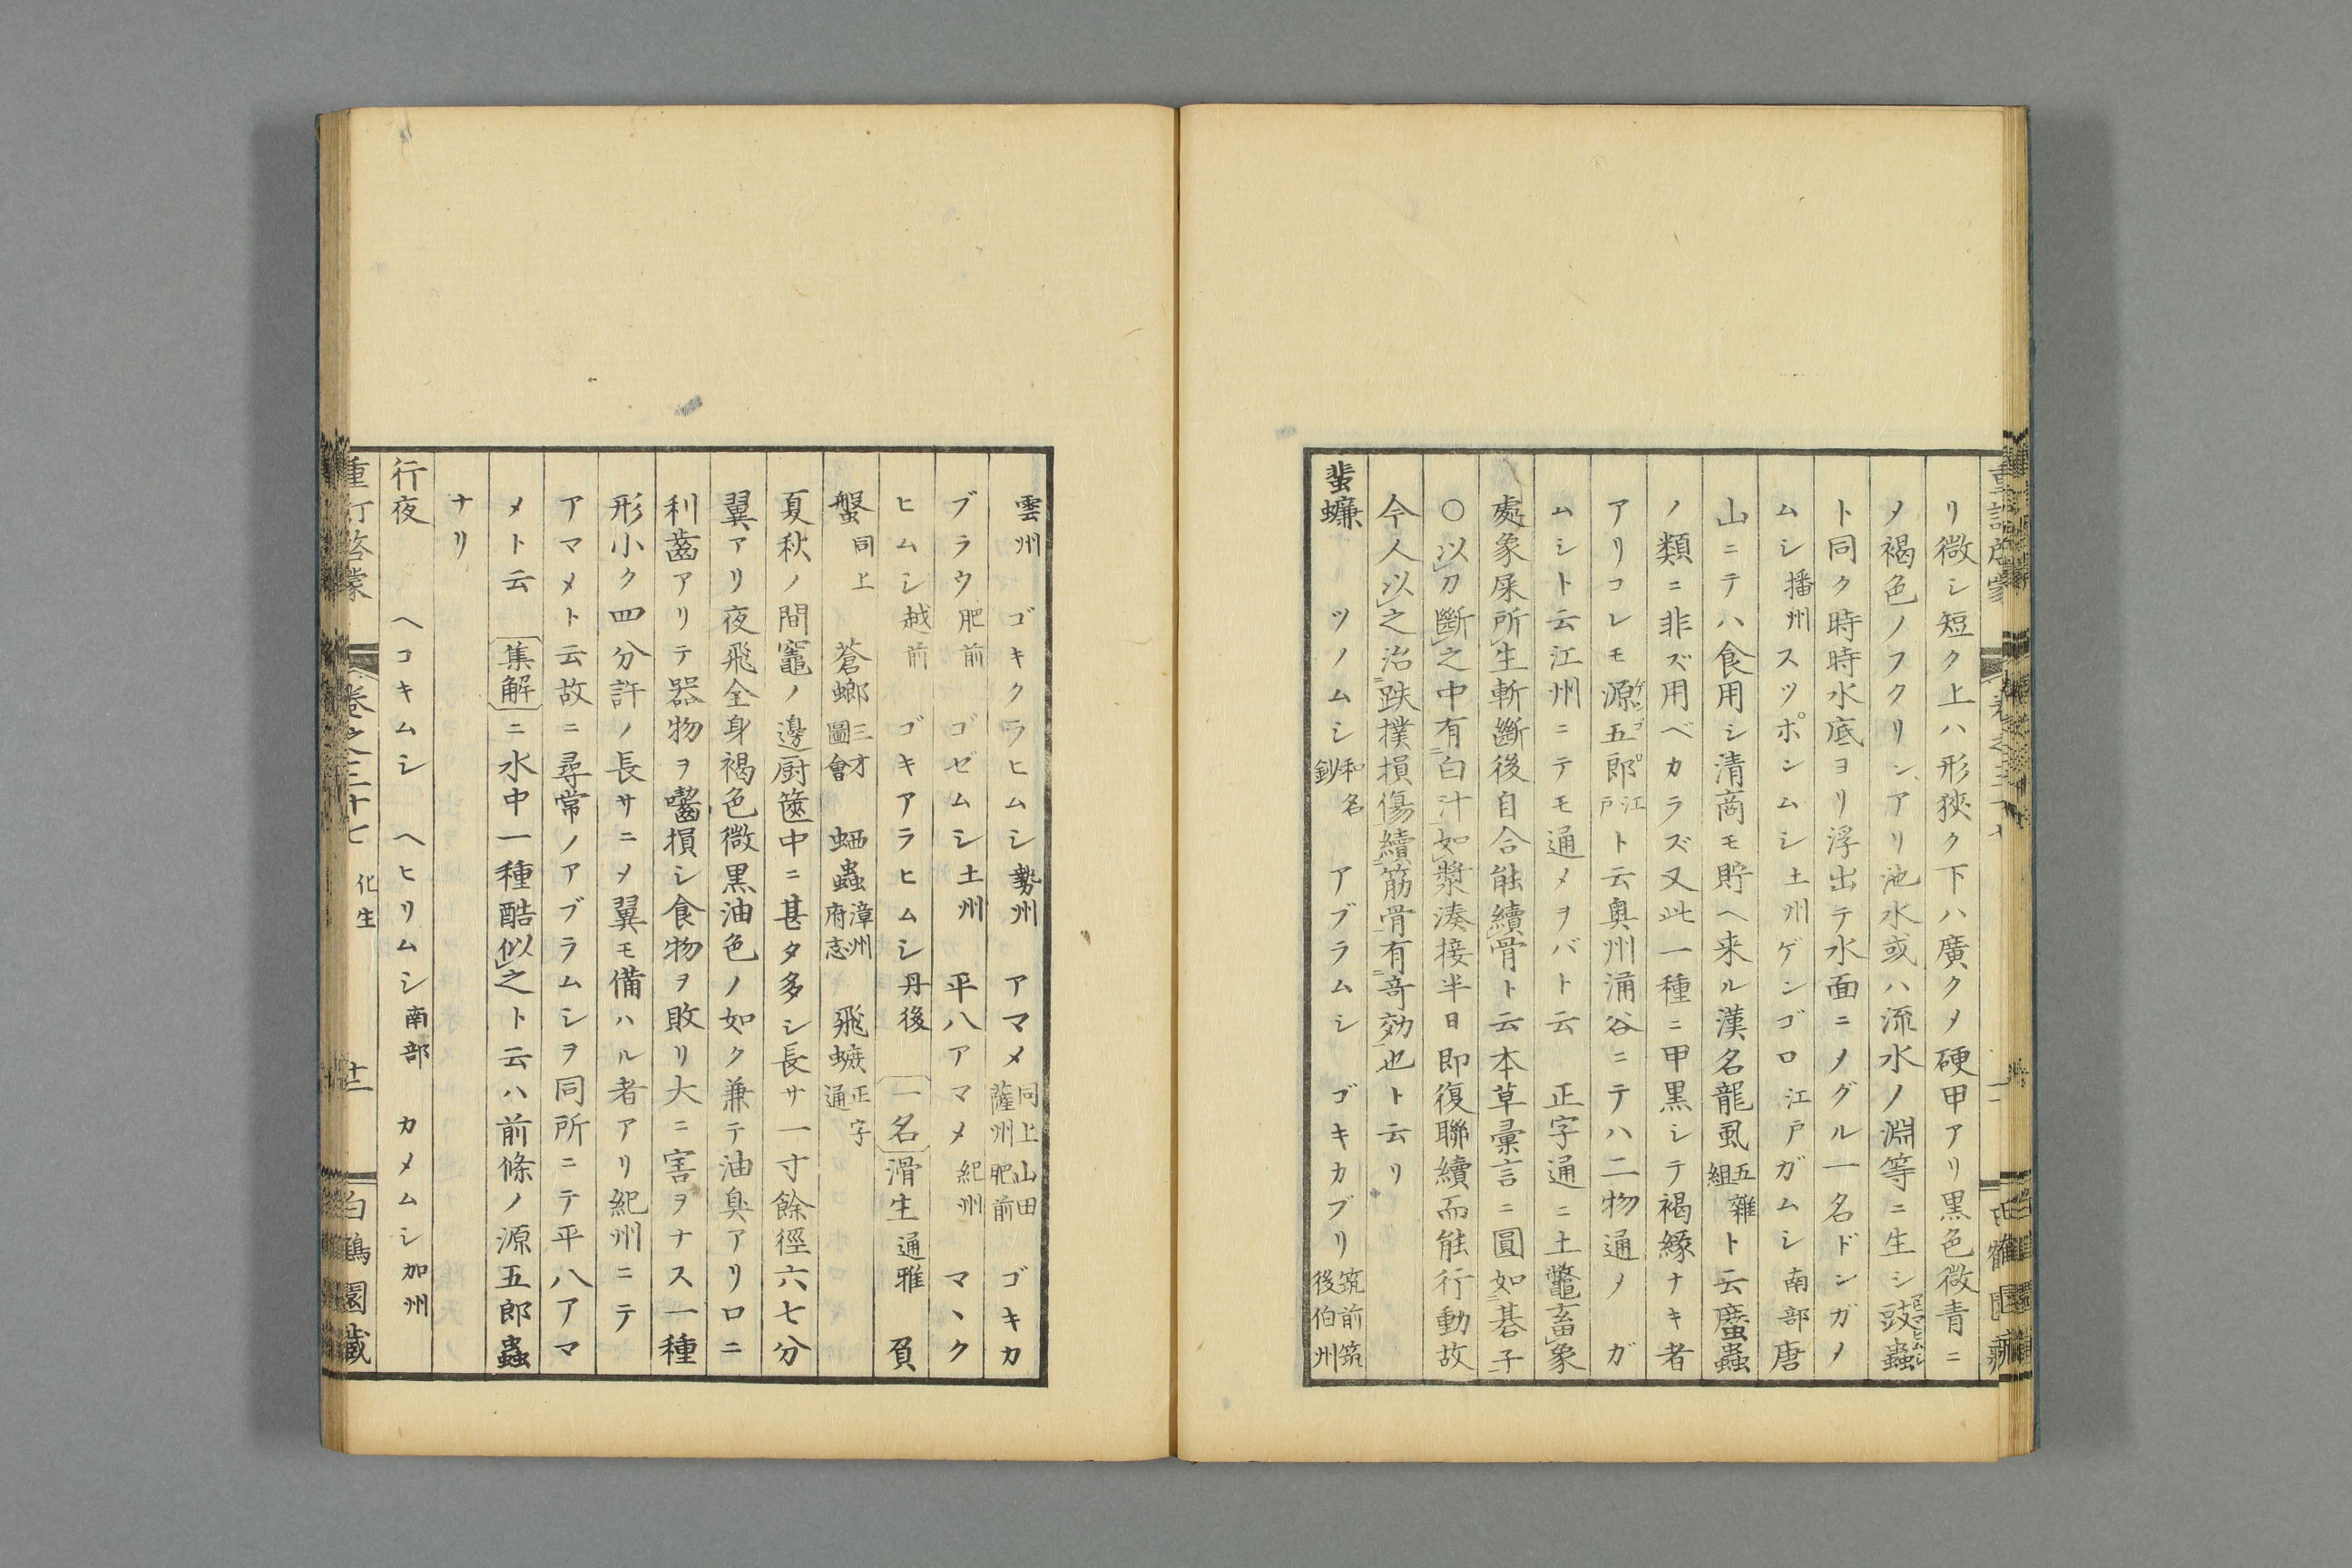 リ微シ短ク上ハ形狹ク下ハ廣クメ硬甲アリ黒色微青ニ
メ褐色ノフクリンアリ池水或ハ流水ノ淵等ニ生シ豉蟲
ト同ク時時水底ヨリ浮出テ水面ニメグル一名ドンガメ
ムシ播州スツポンムシ土州ゲンゴロ江戸ガムシ南部唐
山ニテハ食用シ清商モ貯ヘ来ル漢名龍虱五雜組ト云䗪蟲
ノ類ニ非ズ用ベカラズ又此一種ニ甲黒シテ褐緣ナキ者
アリコレモ源五郎江戸ト云奥州涌谷ニテハ二物通メ ガ
ムシト云江州ニテモ通メヲバト云 正字通ニ土鼈畜象
處象屎所生斬斷後自合能續骨ト云本草彙言ニ圓如碁子
○以刀斷之中有白汁如漿湊接半日即復聯續而能行動故
今人以之治跌撲損傷續筋骨有奇効也ト云リ
蜚蠊 ツノムシ和名鈔 アブラムシ ゴキカブリ筑前筑後伯州
雲州 ゴキクラヒムシ勢州 アマメ同上山田薩州肥前 ゴキカ
ブラウ肥前 ゴゼムシ土州 平八アマメ紀州 マヽク
ヒムシ越前 ゴキアラヒムシ丹後 一名滑生通雅 負
蠜同上 蒼螂三才圖會 蛕蟲漳州府志 飛蟅正字通
夏秋ノ間竈ノ邊厨篋中ニ甚タ多シ長サ一寸餘徑六七分
翼アリ夜飛全身褐色微黒油色ノ如ク兼テ油臭アリロニ
利齒アリテ器物ヲ齧損シ食物ヲ敗リ大ニ害ヲナス一種
形小ク四分許ノ長サニメ翼モ備ハル者アリ紀州ニテ
アマメト云故ニ尋常ノアブラムシヲ同所ニテ平八アマ
メト云 集解ニ水中一種酷似之ト云ハ前條ノ源五郎蟲
ナリ
行夜 ヘコキムシ ヘヒリムシ南部 カメムシ加州
重訂啓蒙 卷之三十七 化生 十二 白鶴園藏